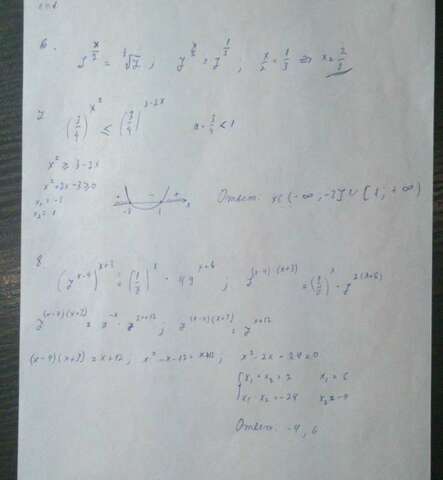 6.
7^{x/2} = ∛7 ; 7^{x/2} = 7^{1/3} ; x/2 = 1/3 ⇒ x = 2/3
7
(3/4)^{x²} ≤ (3/4)^{3-2x} a = 3/4 < 1
x² ≥ 3-2x
x²+2x-3≥0
x₁ = -3
x₂ = 1
+ - +
-3 1 x
Ответ: x∈(-∞, -3]∪[1; +∞)
8.
(7^{x-4})^{x+3} = (1/7)^x · 49^{x+6} ; 7^{(x-4)(x+3)} = (1/7)^x · 7^{2(x+6)}
7^{(x-4)(x+3)} = 7^{-x} · 7^{2x+12} ; 7^{(x-4)(x+3)} = 7^{x+12}
(x-4)(x+3) = x+12 ; x²-x-12 = x+12 ; x²-2x-24=0
x₁+x₂=2 x₁=6
x₁·x₂=-24 x₂=-4
Ответ: -4, 6